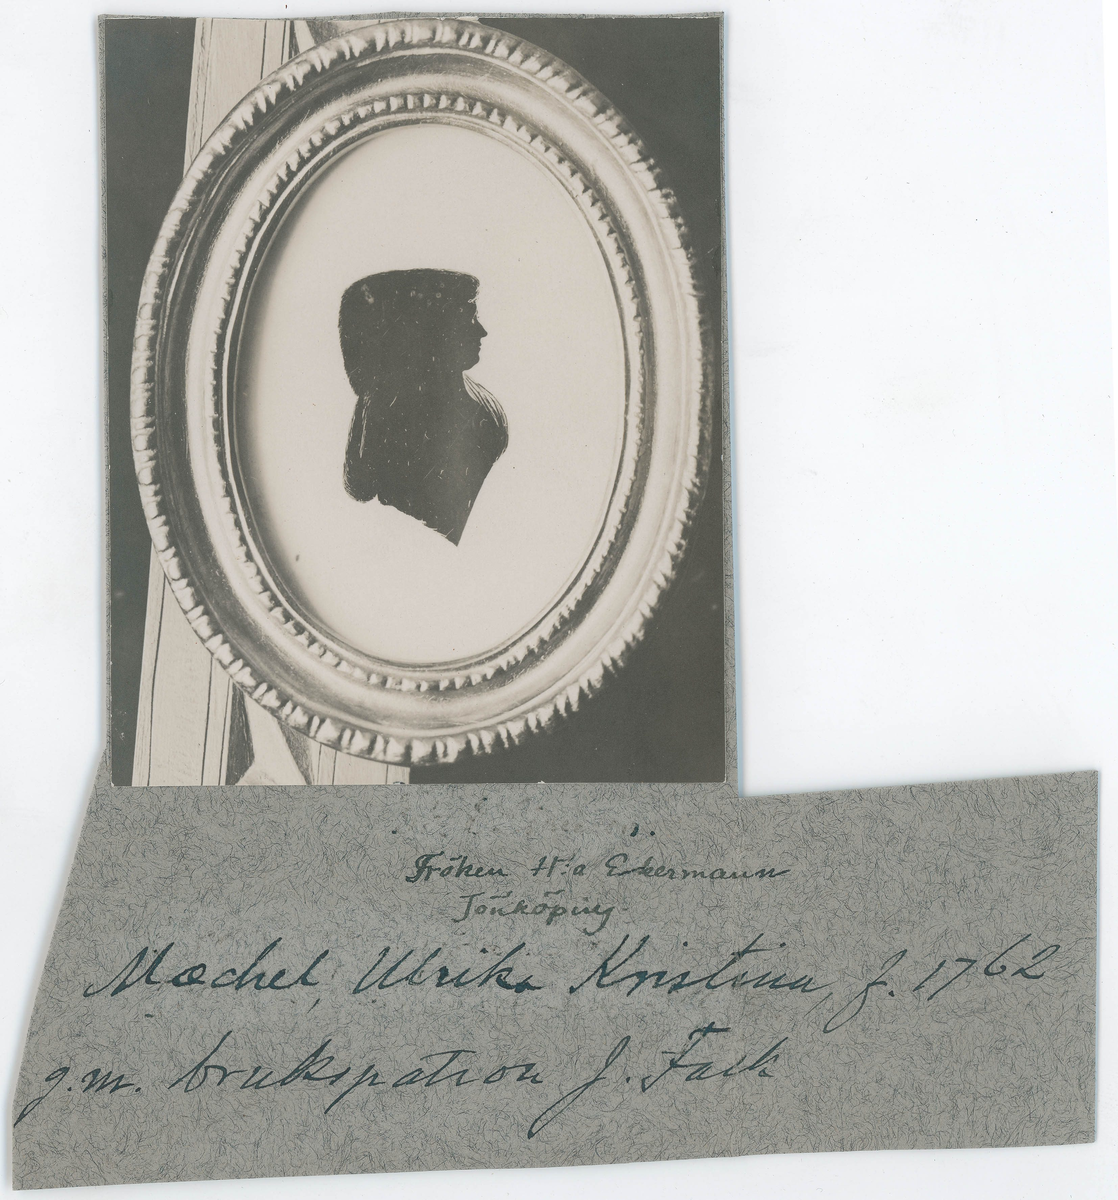 Fröken H:a Ekermann
Jönköping.
Mæchel, Ulrika Kristina, f. 1762
g.m. brukspatron J. Fack